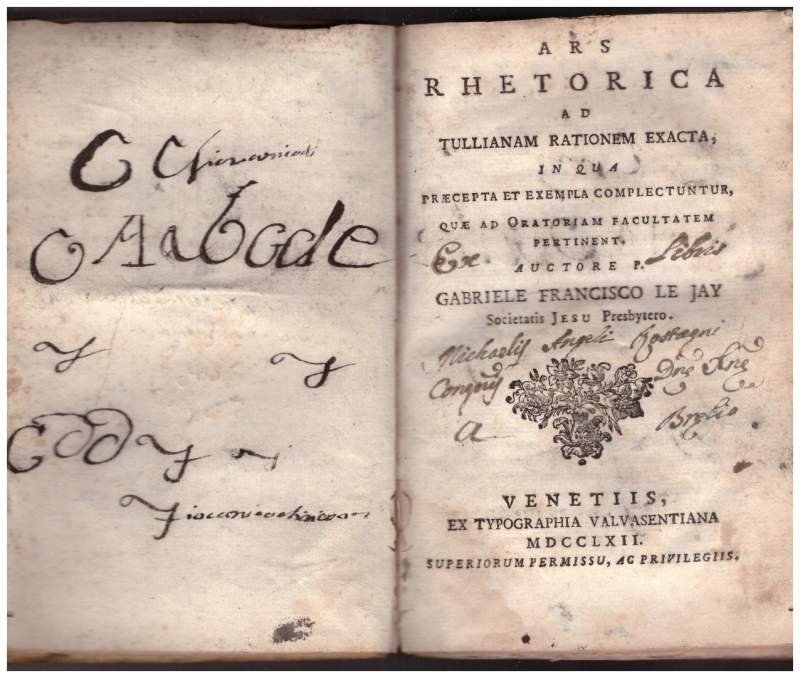 A a b c d e
ARS
RHETORICA
AD
TULLIANAM RATIONEM EXACTA,
IN QUA
PRÆCEPTA ET EXEMPLA COMPLECTUNTUR,
QUÆ AD ORATORIAM FACULTATEM
PERTINENT.
Ex Libris
AUCTORE P.
GABRIELE FRANCISCO LE JAY
Societatis JESU Presbytero.
Michaelis Angeli
a
VENETIIS,
EX TYPOGRAPHIA VALVASENTIANA
MDCCLXII.
SUPERIORUM PERMISSU, AC PRIVILEGIIS.